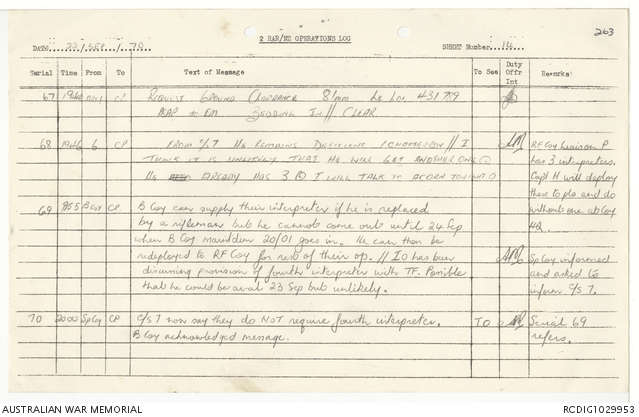 263
2 RAR/NZ OPERATIONS LOG
DATE 23 / SEP / 70 SHEET Number 14
Serial Time From To Text of Message To See Duty Offr Int Remarks
67 REQUEST GROUND CLEARANCE 81mm LOC 431
ASAP TO EM BEDDING IN // CLEAR
68 1946 6 CP FROM C/S 7 // I
THINK IT IS UNLIKELY THAT HE WILL GET ANOTHER ONE
HE ALREADY HAS 3 I WILL TALK TO ACORN
RF Coy P
has 3 interpreters.
Capt H will deploy
these to pls and do
without one at Coy
HQ.
69 1955 B Coy CP B Coy can supply their interpreter if he is replaced
by a rifleman but he cannot come out until 24 Sep
when B Coy maintdem 20/01 goes in. He can then be
redeployed to RF Coy for rest of their op. // IO has been
discussing provision of fourth interpreter with TF. Possible
that he could be avail 23 Sep but unlikely.
Sp Coy informed
and asked to
inform C/S 7.
70 2000 Sp Coy CP C/S 7 now say they do NOT require fourth interpreter.
B Coy acknowledged message.
TO
Serial 69
refers.
AUSTRALIAN WAR MEMORIAL RCDIG1029953